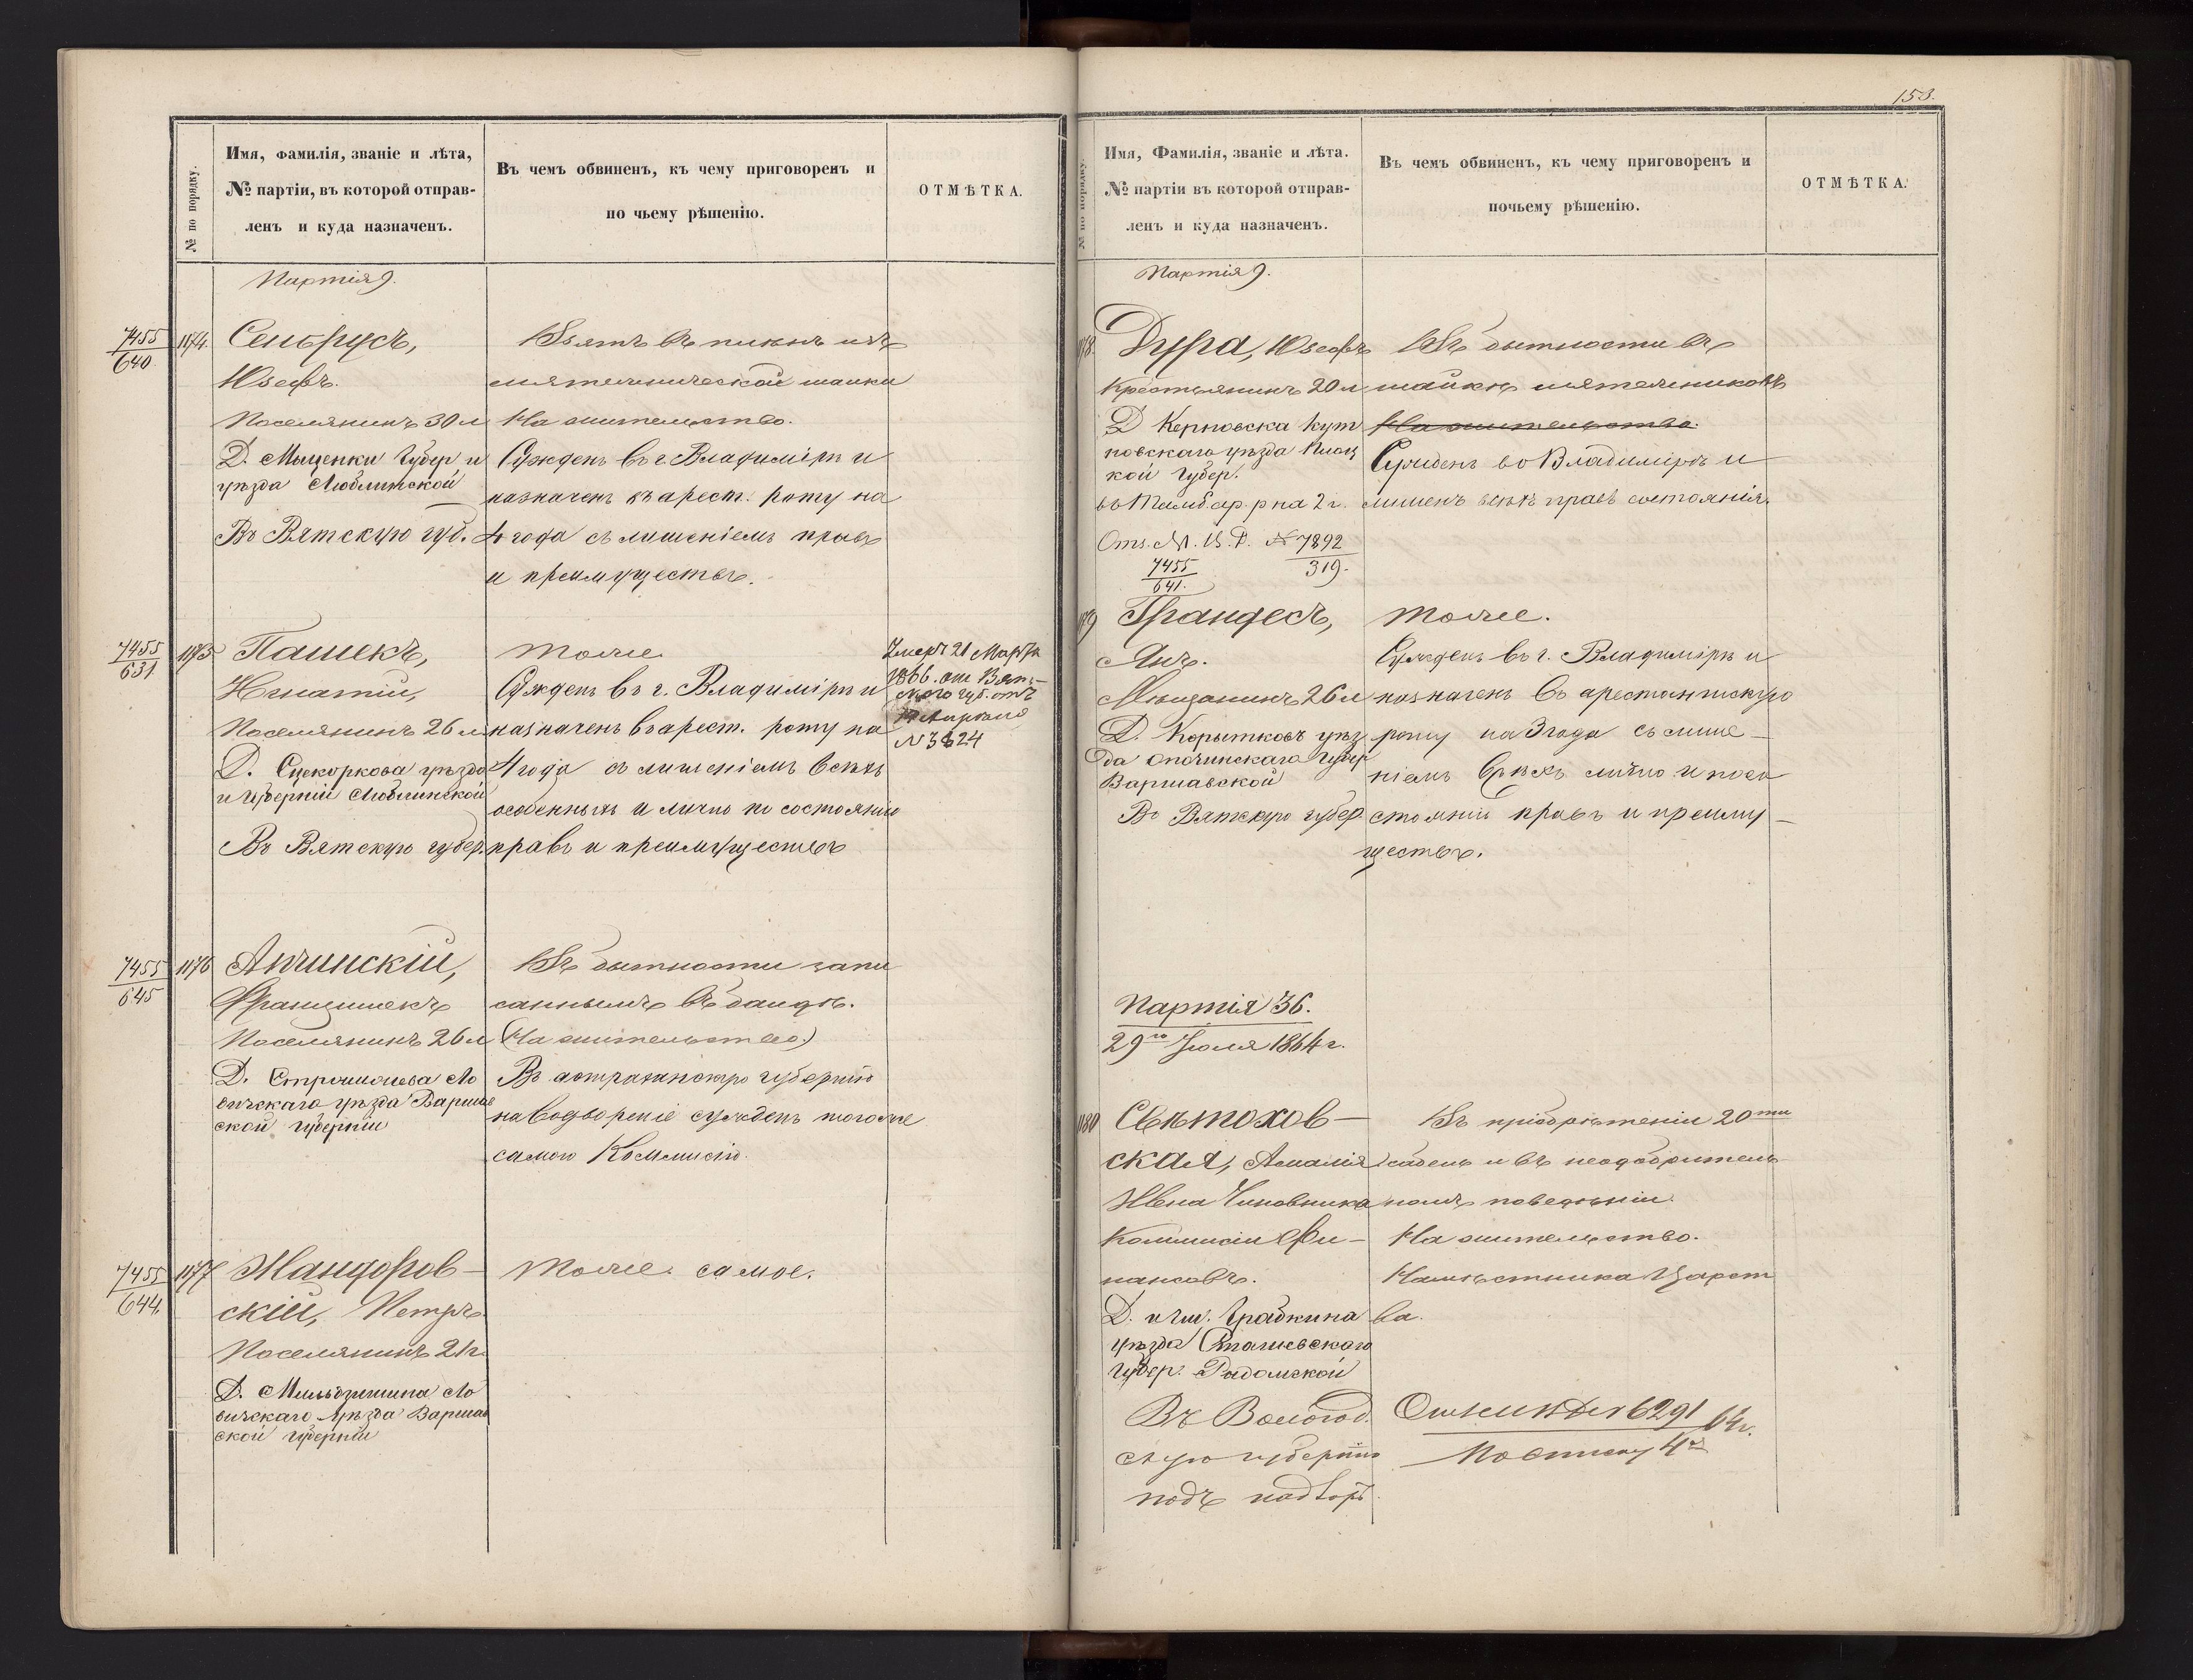 № по порядку.
Имя, Фамилія, званіе и лѣта,
№ партіи, въ которой отправ-
ленъ и куда назначенъ.
Въ чемъ обвиненъ, къ чему приговоренъ и
по чьему рѣшенію.
ОТМѢТКА.
Партія 9.
7455
640
1174.
Сеньрусъ,
Юзефъ.
Поселянинъ 30 л
Д. Мыценки Губер. и
уѣзда Люблинской
Въ Вятскую губ.
Взятъ въ плѣнъ изъ
мятежнической шайки
На жительство.
Сужденъ въ г. Владимірѣ и
назначенъ въ арест. роту на
4 года съ лишеніемъ правъ
и преимуществъ.
7455
631
1175
Пашекъ,
Игнатій,
Поселянинъ 26 л
Д. уѣзда
и губерніи Люблинской
Въ Вятскую губер.
Тоже
Сужденъ въ г. Владимірѣ и
назначенъ въ арест. роту на
4 года съ лишеніемъ всѣхъ
особенныхъ и лично по состоянію
правъ и преимуществъ
Умеръ 21 Марта
1866. от. Вят-
скаго губ. отъ
Апрѣля
№ 3824
7455
645
1176
Анчинскій,
Францишекъ
Поселянинъ 26 л
Д. Ло
вичскаго уѣзда Варшав
ской губерніи
Въ бытности запи
саннымъ въ бандѣ.
(На жительство)
Въ астраханскую губернію
на водвореніе сужденъ тогоже
самою Коммисіею.
7455
644.
1177
Мандоров-
скій, Петръ.
Поселянинъ 21 г.
Д. Ло
вичскаго уѣзда Варшав
ской губерніи
Тоже самое.
153.
№ по порядку.
Имя, Фамилія, званіе и лѣта.
№ партіи въ которой отправ-
ленъ и куда назначенъ.
Въ чемъ обвиненъ, къ чему приговоренъ и
почьему рѣшенію.
ОТМѢТКА.
Партія 9.
1178.
Дура, Юзефъ
Крестьянинъ 20 л
Д Керновска Кут
новскаго уѣзда Плоц
кой Губер.
въ Тамб. ар. р на 2 г.
Отз. М. В. Д. № 7892
319.
7455
641.
Въ бытности въ
шайкѣ мятежниковъ
На жительство.
Сужденъ во Владимірѣ и
лишенъ всѣхъ правъ состоянія.
1179
Грандесъ,
Янъ.
Мѣщанинъ 26 л
Д. Корытковъ уѣз
да Опочинскаго Губер
Варшавской
Въ Вятскую губер.
Тоже.
Сужденъ въ г. Владимірѣ и
назначенъ въ арестантскую
роту на 3 года съ лише-
ніемъ всѣхъ лично и по со
стоянію правъ и преиму-
ществъ.
Партія 36.
29го Іюля 1864 г.
1180
Свѣтохов-
ская, Амалія
Жена Чиновника
Коммисіи Фи-
нансовъ.
Д. и Гм. Грабкина
уѣзда
Губер. Радомской
Въ Вологод.
скую губернію
подъ надзоръ.
Въ пріобрѣтеніи 20ти
сабель и въ неодобритель
номъ поведѣніи.
На жительство.
Намѣстника Царст
ва.
6291
64 г.